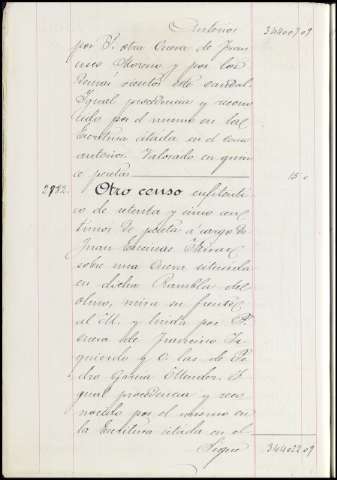 Anterior 344007 09
por P. otra Cueva de Juan
Moreno y por los
demás vientos este caudal.
Igual procedencia y recono
cido por el mismo en la
Escritura citada en el censo
anterior. Valorado en quin
ce pesetas 15 "
2982. Otro censo enfitéuti
co de setenta y cinco cén
timos de peseta á cargo de
Juan
sobre una Cueva situada
en dicha Rambla del
Olmo, mira su frente
al M. y linda por P.
cueva de Francisco Iz
quierdo y O. las de Pe
dro Garcia Mendez. I
gual procedencia y reco
nocido por el mismo en
la Escritura citada en el
Sigue 344022 09